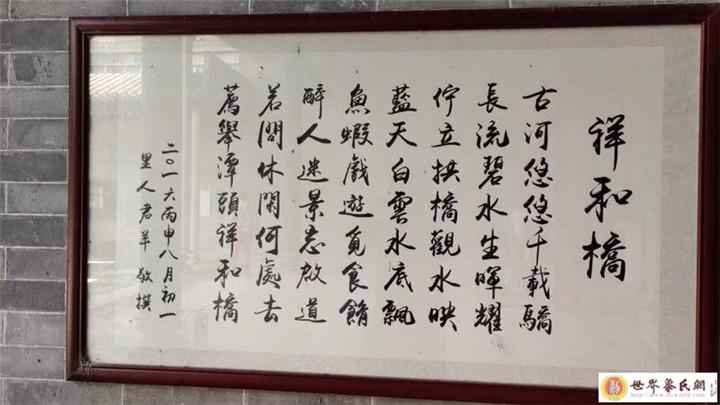 祥和橋
古河悠悠千載驕
長流碧水生暉耀
佇立拱橋觀水映
藍天白雲水底飄
魚蝦戲遊覓食餚
醉人迷景忘啟道
若問休閑何處去
薦舉潭頭祥和橋
二〇一六丙申八月初一
里人君羊敬撰
世界蔡氏網